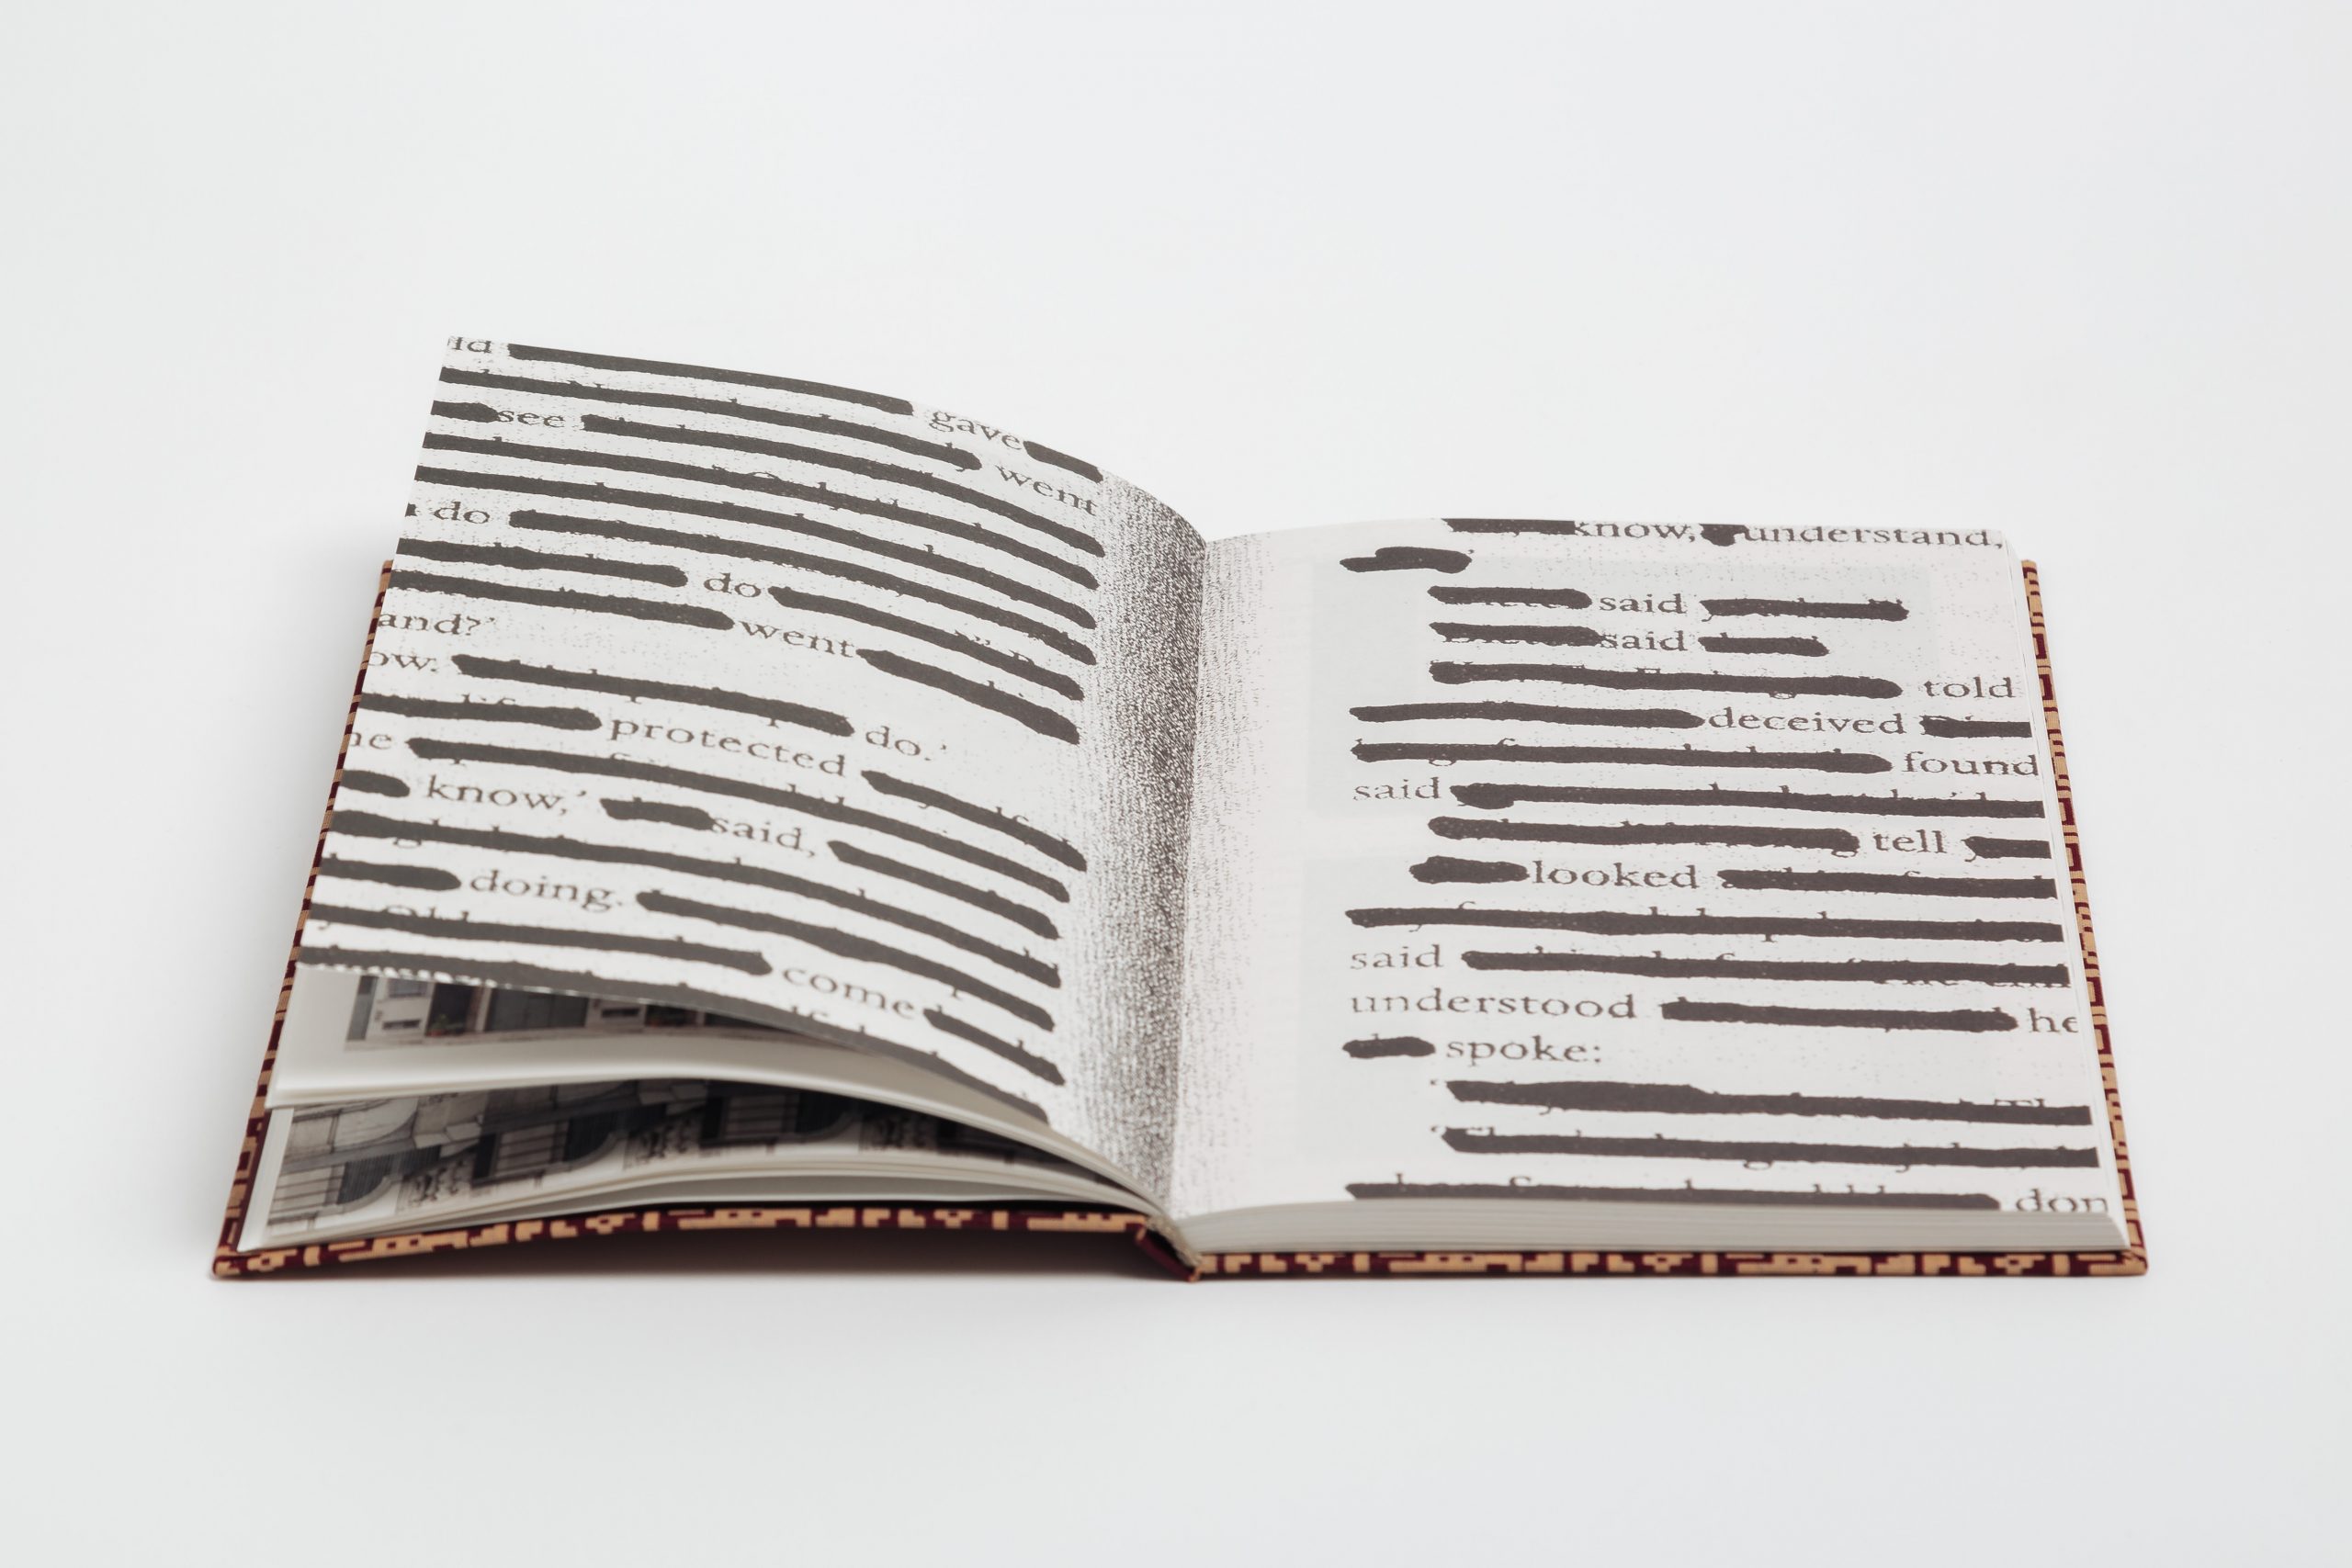 gave
went
see
do
do
went
and?'
ow.
do.'
protected
he
know,' said,
doing.
come
know, understand,
said
said
told
deceived
found
said
tell
looked
said
understood he
spoke:
don